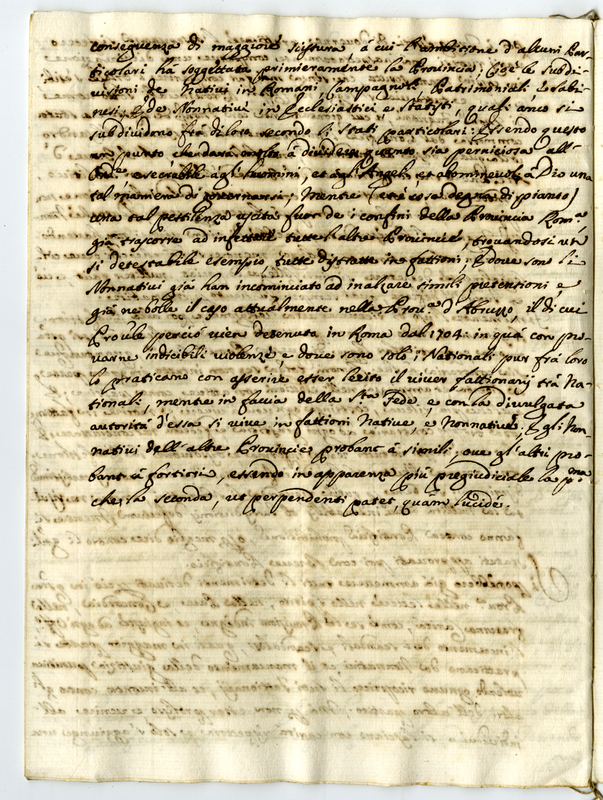 conseguenza di maggiore scissura, á cui l'ambizione d'alcuni Par-
ticolari ha soggettata primieramente la Provincia; Cioè le Subdi-
visioni de Nativi in Romani, Campagnoli, Patrimoniali, e Sabi-
nesi, e de Nonnativi in Ecclesiastici e Statisti, quali anco si
subdividono frá di loro secondo li Stati particolari: Essendo questo
un punto á dividere quanto sia perniciosa all'
esecrabil agl'huomini, et agl'Angeli, et abominevole á Dio una
tal maniera di governarsi; Mentre (et è cosa degna di pianto)
una tal pestilenza uscita fuor de i confini della Provincia Rom.a
giá trascorre ad infettare tutte l'altre Provincie, trovandosi ut
si detestabili esempio, tutte distratte in fattioni; E dove sono li
Nonnativi giá han incominciato ad inalzare simili pretentioni e
giá ne bolle il caso attualmente nella Prov.a d'Abruzzo, il di cui
Proule perciò vien detenuto in Roma dal 1704. in quá con pro-
varne indicibili violenze, e dove sono soli i Nationali pur frá loro
lo praticano con asserire esser lecito il viver fattionarij trá Na-
tionali, mentre in faccia della S.ta Fede, e con la divulgata
autoritá d'essa si vive in fattioni Native, e Nonnative; E gli Non-
nativi dell'altre Provincie, probant á simili, ove gl'altri pro-
bant á fortiori, essendo in apparenza piú pregiudiciale la p.ma
che la seconda, ut perpendenti patet, quám lucidé.